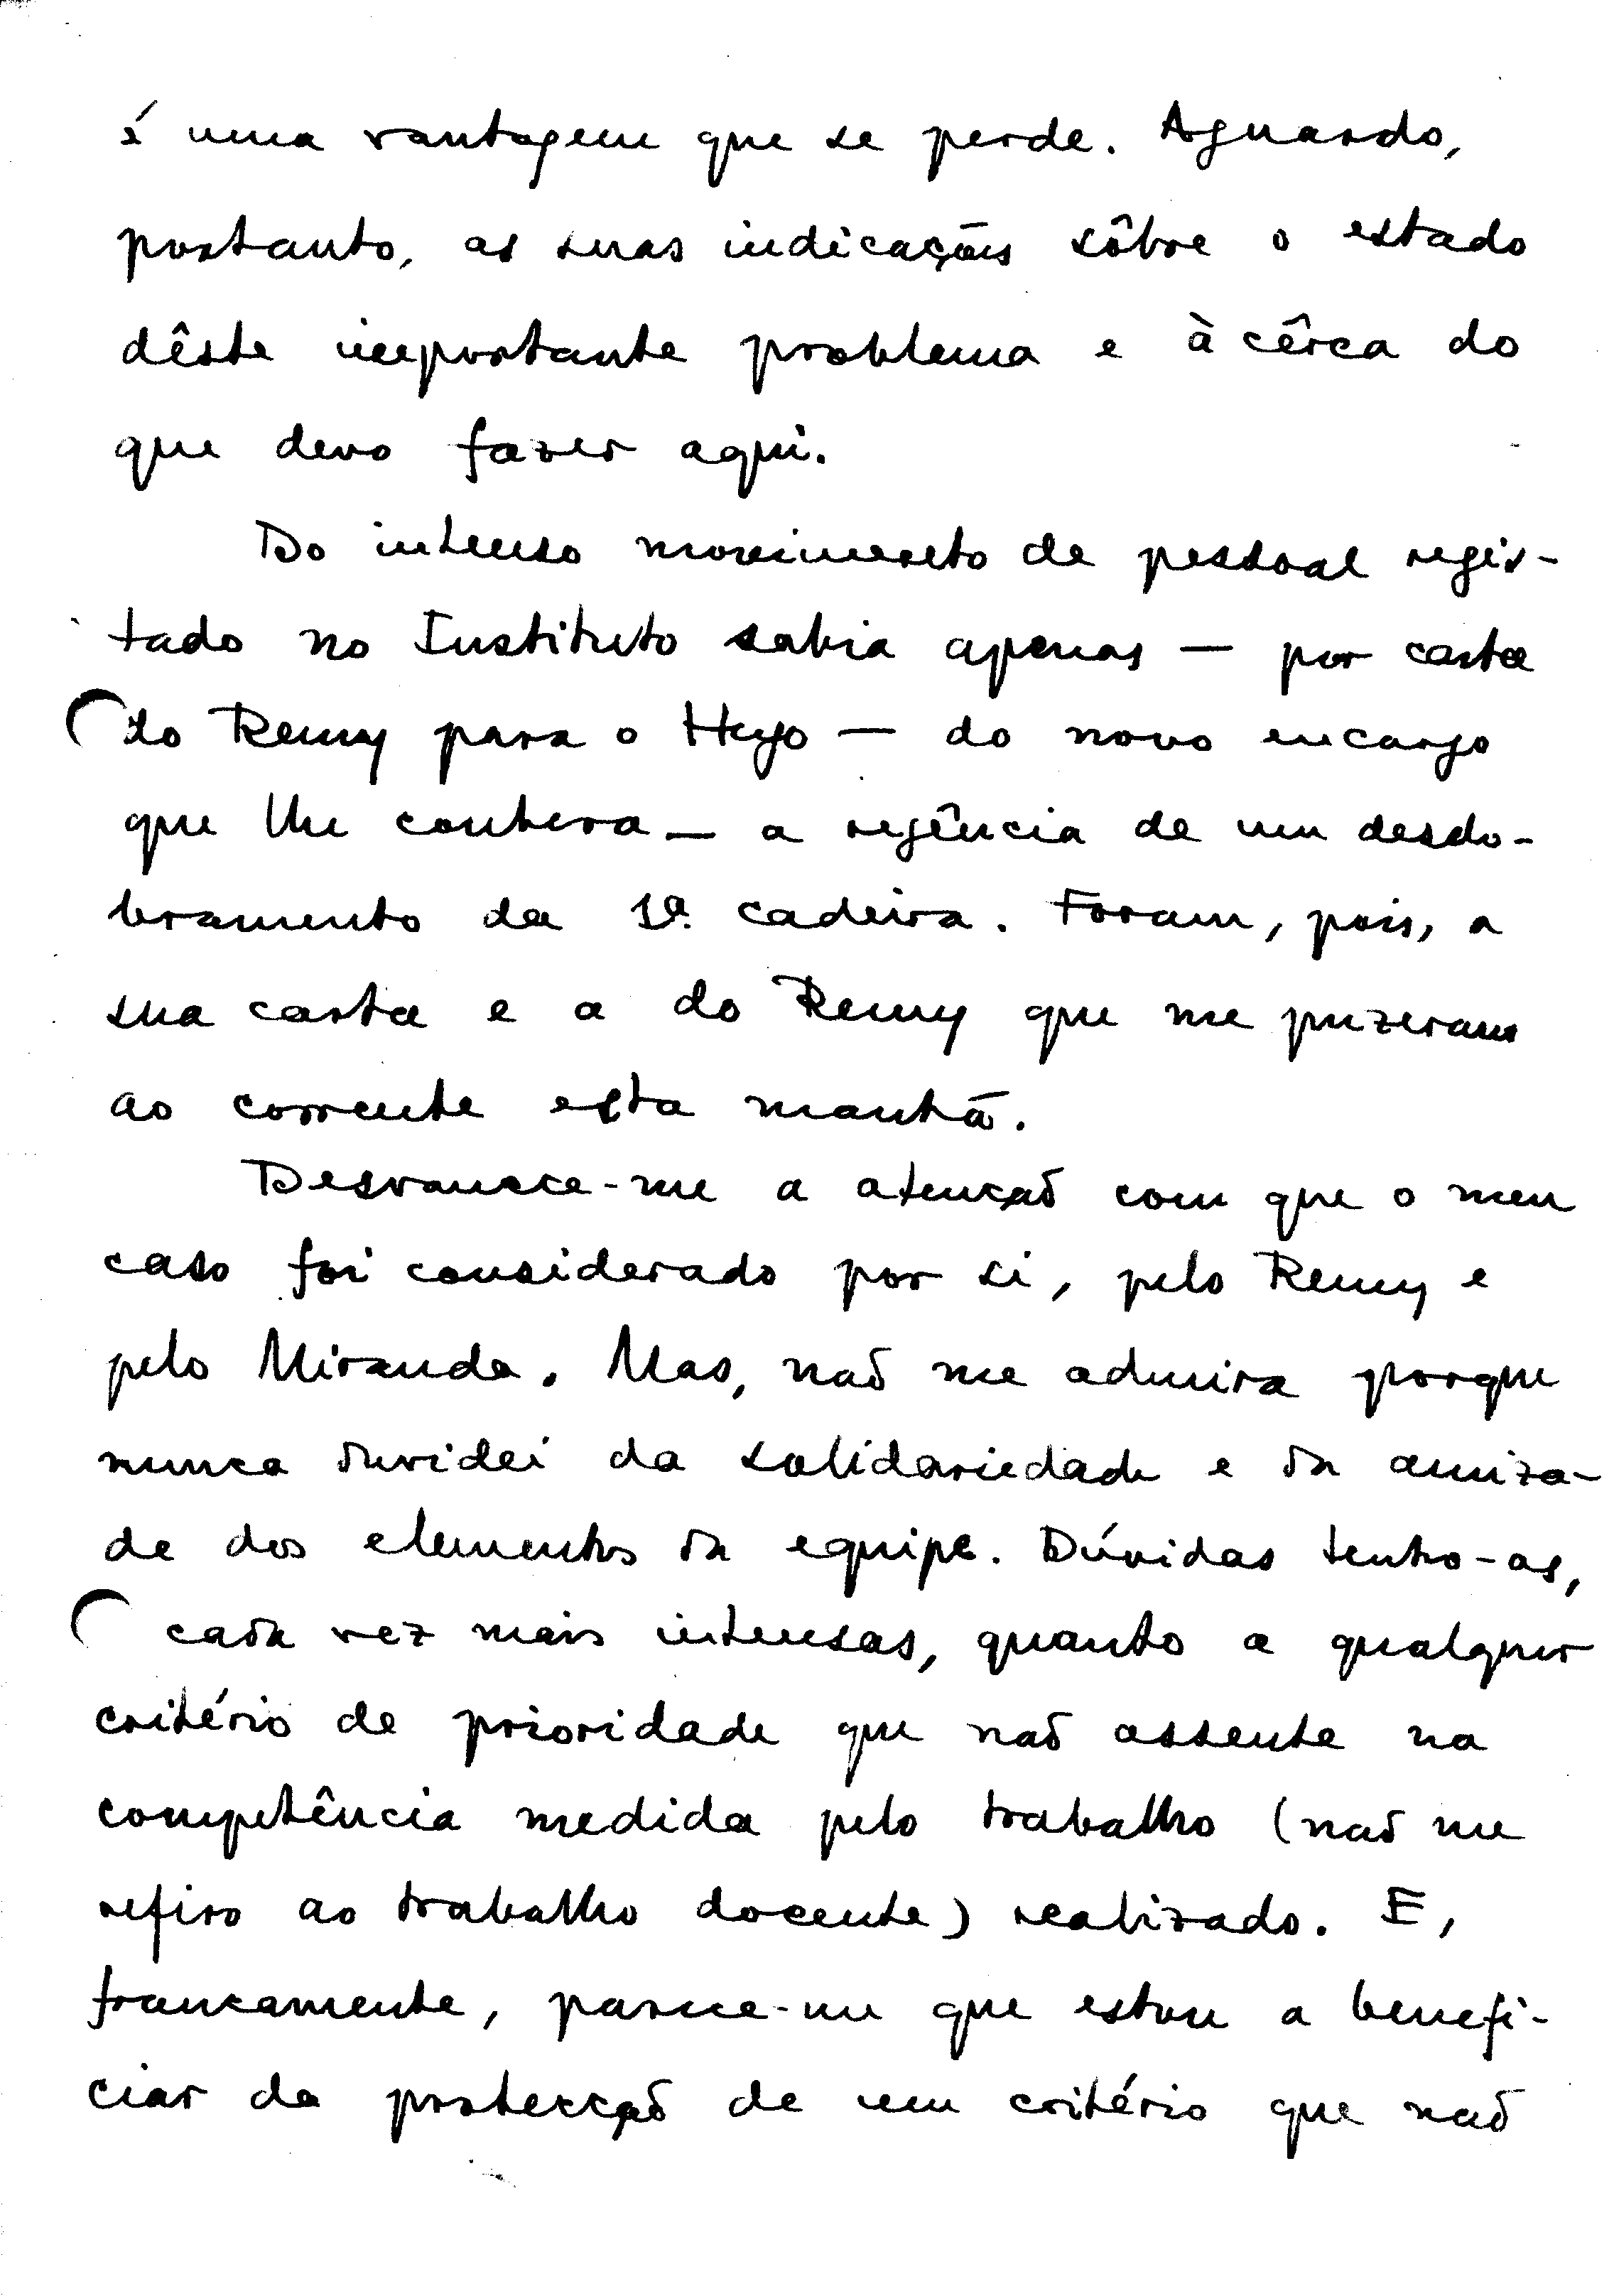 é uma vantagem que se perde. Aguardo,
portanto, as suas indicações sôbre o estado
dêste importante problema e à cêrca do
que devo fazer aqui.
Do intenso movimento de pessoal regis-
tado no Instituto sabia apenas — por carta
do Remy para o Hugo — do novo encargo
que lhe coubera — a regência de um desdo-
bramento da 1ª cadeira. Foram, pois, a
sua carta e a do Remy que me puzeram
ao corrente esta manhã.
Desvanece-me a atenção com que o meu
caso foi considerado por si, pelo Remy e
pelo Miranda. Mas, não me admira porque
nunca duvidei da solidariedade e da amiza-
de dos elementos da equipe. Dúvidas tenho-as,
cada vez mais intensas, quanto a qualquer
critério de prioridade que não assente na
competência medida pelo trabalho (não me
refiro ao trabalho docente) realizado. E,
francamente, parece-me que estou a benefi-
ciar da protecção de um critério que não